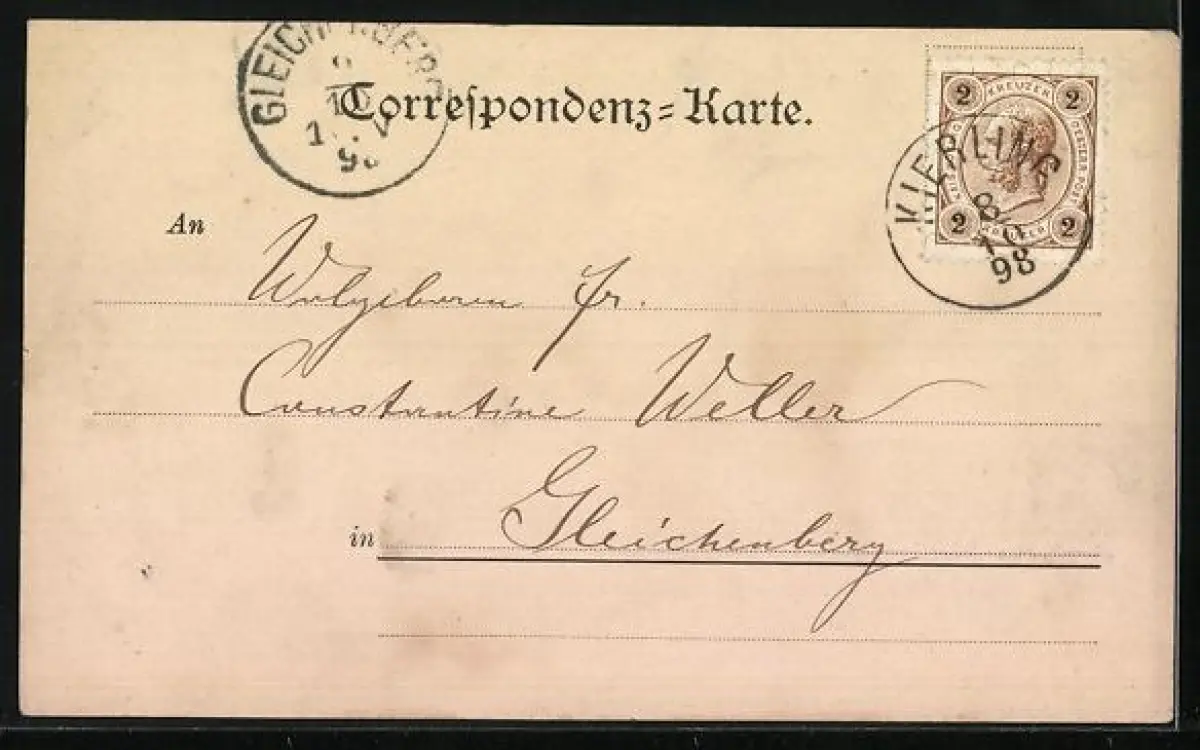 GLEICHENBERG
9
10
98
Correspondenz-Karte.
2 KREUZER 2
2 KREUZER 2
KIERLING
8
10
98
An
Wolgeboren fr.
Constantine Weller
in Gleichenberg